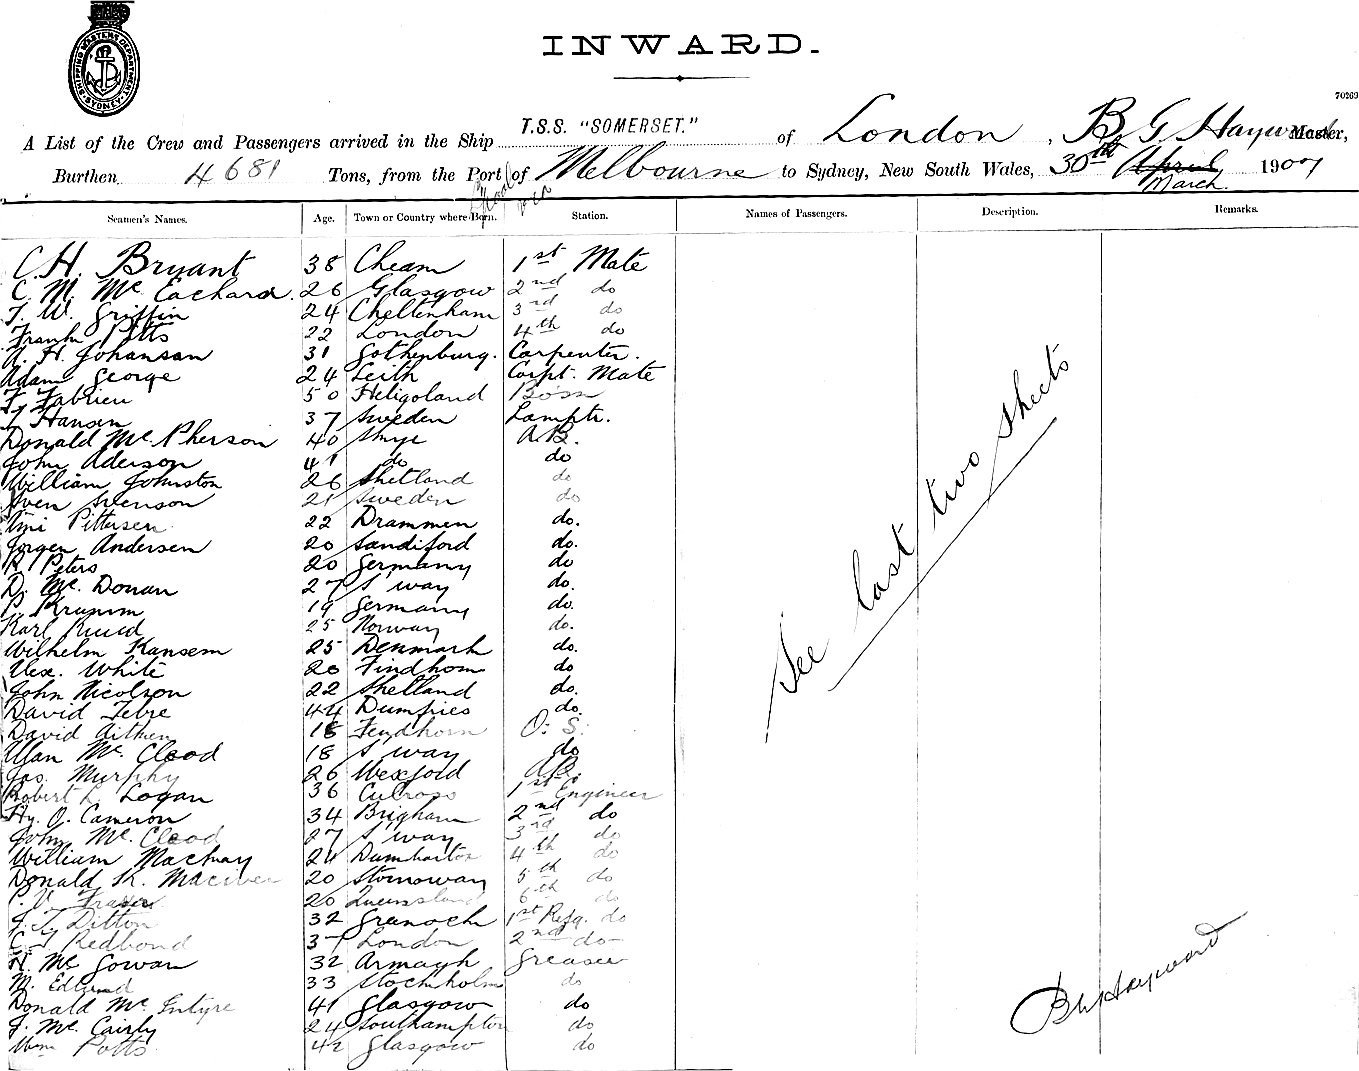 SHIPPING MASTER'S DEPARTMENT SYDNEY
INWARD.
70269
A List of the Crew and Passengers arrived in the Ship T.S.S. "SOMERSET." of London, B. G. Hayward Master,
Burthen 4681 Tons, from the Port of Melbourne to Sydney, New South Wales, 30th April March 1907
Seamen's Names. Age. Town or Country where Born. Station. Names of Passengers. Description. Remarks.
C. H. Bryant 38 Cheam 1st Mate
C. M. Mc Eachard. 26 Glasgow 2nd do
T. W. Griffin 24 Cheltenham 3rd do
Frank Pitts 22 London 4th do
A. H. Johansan 31 Gothenburg. Carpenter.
Adam George 24 Leith Carpt. Mate
F. Fabrien 50 Heligoland Bosn
T. Hansen 37 Sweden Lamptr.
Donald Mc. Pherson 40 Skye A.B.
John Aderson 41 do do
William Johnston 26 Shetland do
Sven Svenson 21 Sweden do
Pittersen 22 Drammen do.
Jorgen Andersen 20 Sandiford do.
R. Peters 20 Germany do
D. Mc. Donan 27 S'way do.
P. Krumm 19 Germany do.
Karl Ruud 25 Norway do.
Wilhelm Hansem 25 Denmark do.
Alex. White 20 Findhom do
John Nicolson 22 Shetland do.
David Tebre 44 Dumfries do.
David Aitken 18 Findhorn O. S.
Alan Mc. Cleod 18 S'way do
Jas. Murphy 26 Wexford A.B.
Robert L. Logan 36 Culross 1st Engineer
Hy. O. Cameron 34 Brigham 2nd do
John Mc. Cleod 27 S'way 3rd do
William Mackay 24 Dumbarton 4th do
Donald K. Maciver 20 Stornoway 5th do
V. Fraser 20 Queensland 6th do
Ditton 32 Greenock 1st Refg. do
Redbond 37 London 2nd do
H. Mc Gowan 32 Armagh Greaser
M. Edlund 33 Stockholm do
Donald Mc. Intyre 41 Glasgow do
J. Mc. Cairly 24 Southampton do
Wm Potts 42 Glasgow do
See last two sheets
B G Hayward